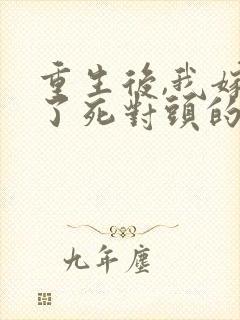 重生後,我嫁
了死對頭的
九年塵